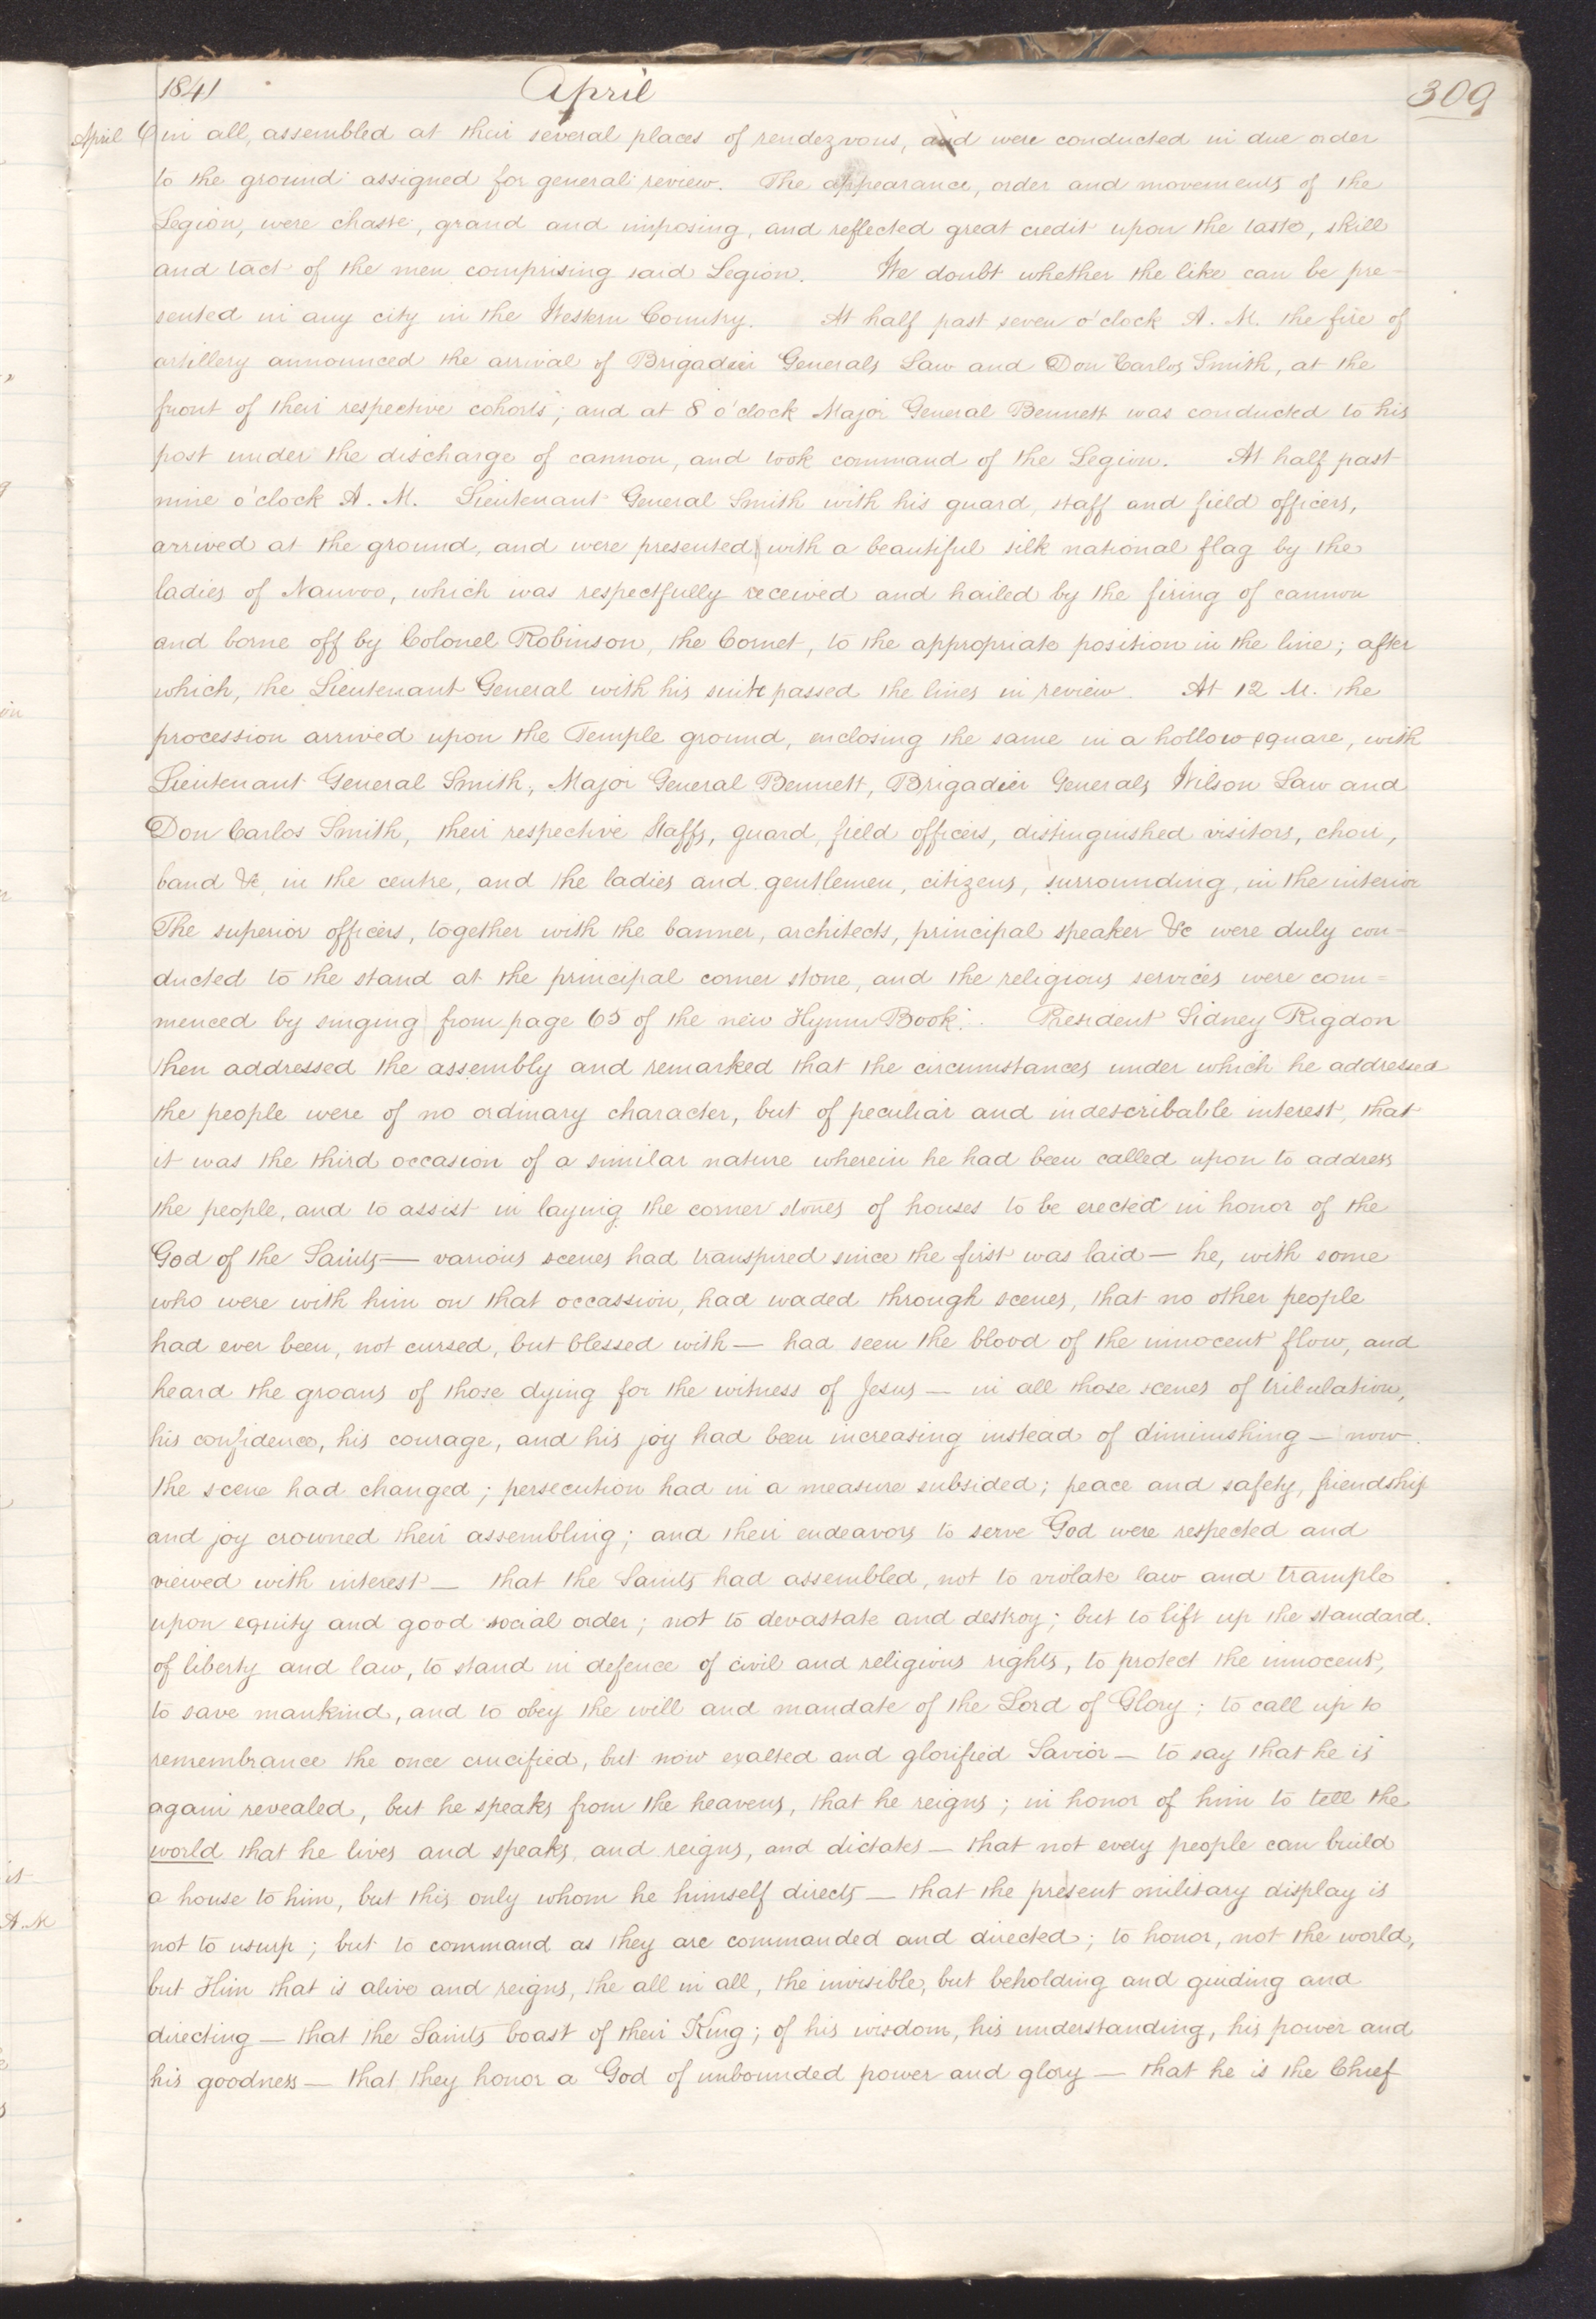 1841 April 309
April 6 in all, assembled at their several places of rendezvous, and were conducted in due order
to the ground assigned for general review. The appearance, order and movements of the
Legion, were chaste, grand and imposing, and reflected great credit upon the taste, skill
and tact of the men comprising said Legion. We doubt whether the like can be pre-
sented in any city in the Western Country. At half past seven o'clock A. M. the fire of
artillery announced the arrival of Brigadier Generals Law and Don Carlos Smith, at the
front of their respective cohorts; and at 8 o'clock Major General Bennett was conducted to his
post under the discharge of cannon, and took command of the Legion. At half past
nine o'clock A. M. Lieutenant General Smith with his guard, staff and field officers,
arrived at the ground, and were presented with a beautiful silk national flag by the
ladies of Nauvoo, which was respectfully received and hailed by the firing of cannon
and borne off by Colonel Robinson, the Cornet, to the appropriate position in the line; after
which, the Lieutenant General with his suite passed the lines in review. At 12 M. the
procession arrived upon the Temple ground, enclosing the same in a hollow square, with
Lieutenant General Smith, Major General Bennett, Brigadier Generals Wilson Law and
Don Carlos Smith, their respective Staffs, guard, field officers, distinguished visitors, choir,
band &c, in the centre, and the ladies and gentlemen, citizens, surrounding, in the interior
The superior officers, together with the banner, architects, principal speaker &c were duly con-
ducted to the stand at the principal corner stone, and the religious services were com=
menced by singing from page 65 of the new Hymn Book. President Sidney Rigdon
then addressed the assembly and remarked that the circumstances under which he addressed
the people were of no ordinary character, but of peculiar and indescribable interest, that
it was the third occasion of a similar nature wherein he had been called upon to address
the people, and to assist in laying the corner stones of houses to be erected in honor of the
God of the Saints— various scenes had transpired since the first was laid— he, with some
who were with him on that occassion, had waded through scenes, that no other people
had ever been, not cursed, but blessed with— had seen the blood of the innocent flow, and
heard the groans of those dying for the witness of Jesus— in all those scenes of tribulation,
his confidence, his courage, and his joy had been increasing instead of diminishing— now
the scene had changed; persecution had in a measure subsided; peace and safety, friendship
and joy crowned their assembling; and their endeavors to serve God were respected and
viewed with interest— that the Saints had assembled, not to violate law and trample
upon equity and good social order; not to devastate and destroy; but to lift up the standard
of liberty and law, to stand in defence of civil and religious rights, to protect the innocent,
to save mankind, and to obey the will and mandate of the Lord of Glory; to call up to
remembrance the once crucified, but now exalted and glorified Savior— to say that he is
again revealed, but he speaks from the heavens, that he reigns; in honor of him to tell the
world that he lives and speaks, and reigns, and dictates— that not every people can build
a house to him, but this only whom he himself directs— that the present military display is
not to usurp; but to command as they are commanded and directed; to honor, not the world,
but Him that is alive and reigns, the all in all, the invisible, but beholding and guiding and
directing— that the Saints boast of their King; of his wisdom, his understanding, his power and
his goodness— that they honor a God of unbounded power and glory— that he is the Chief